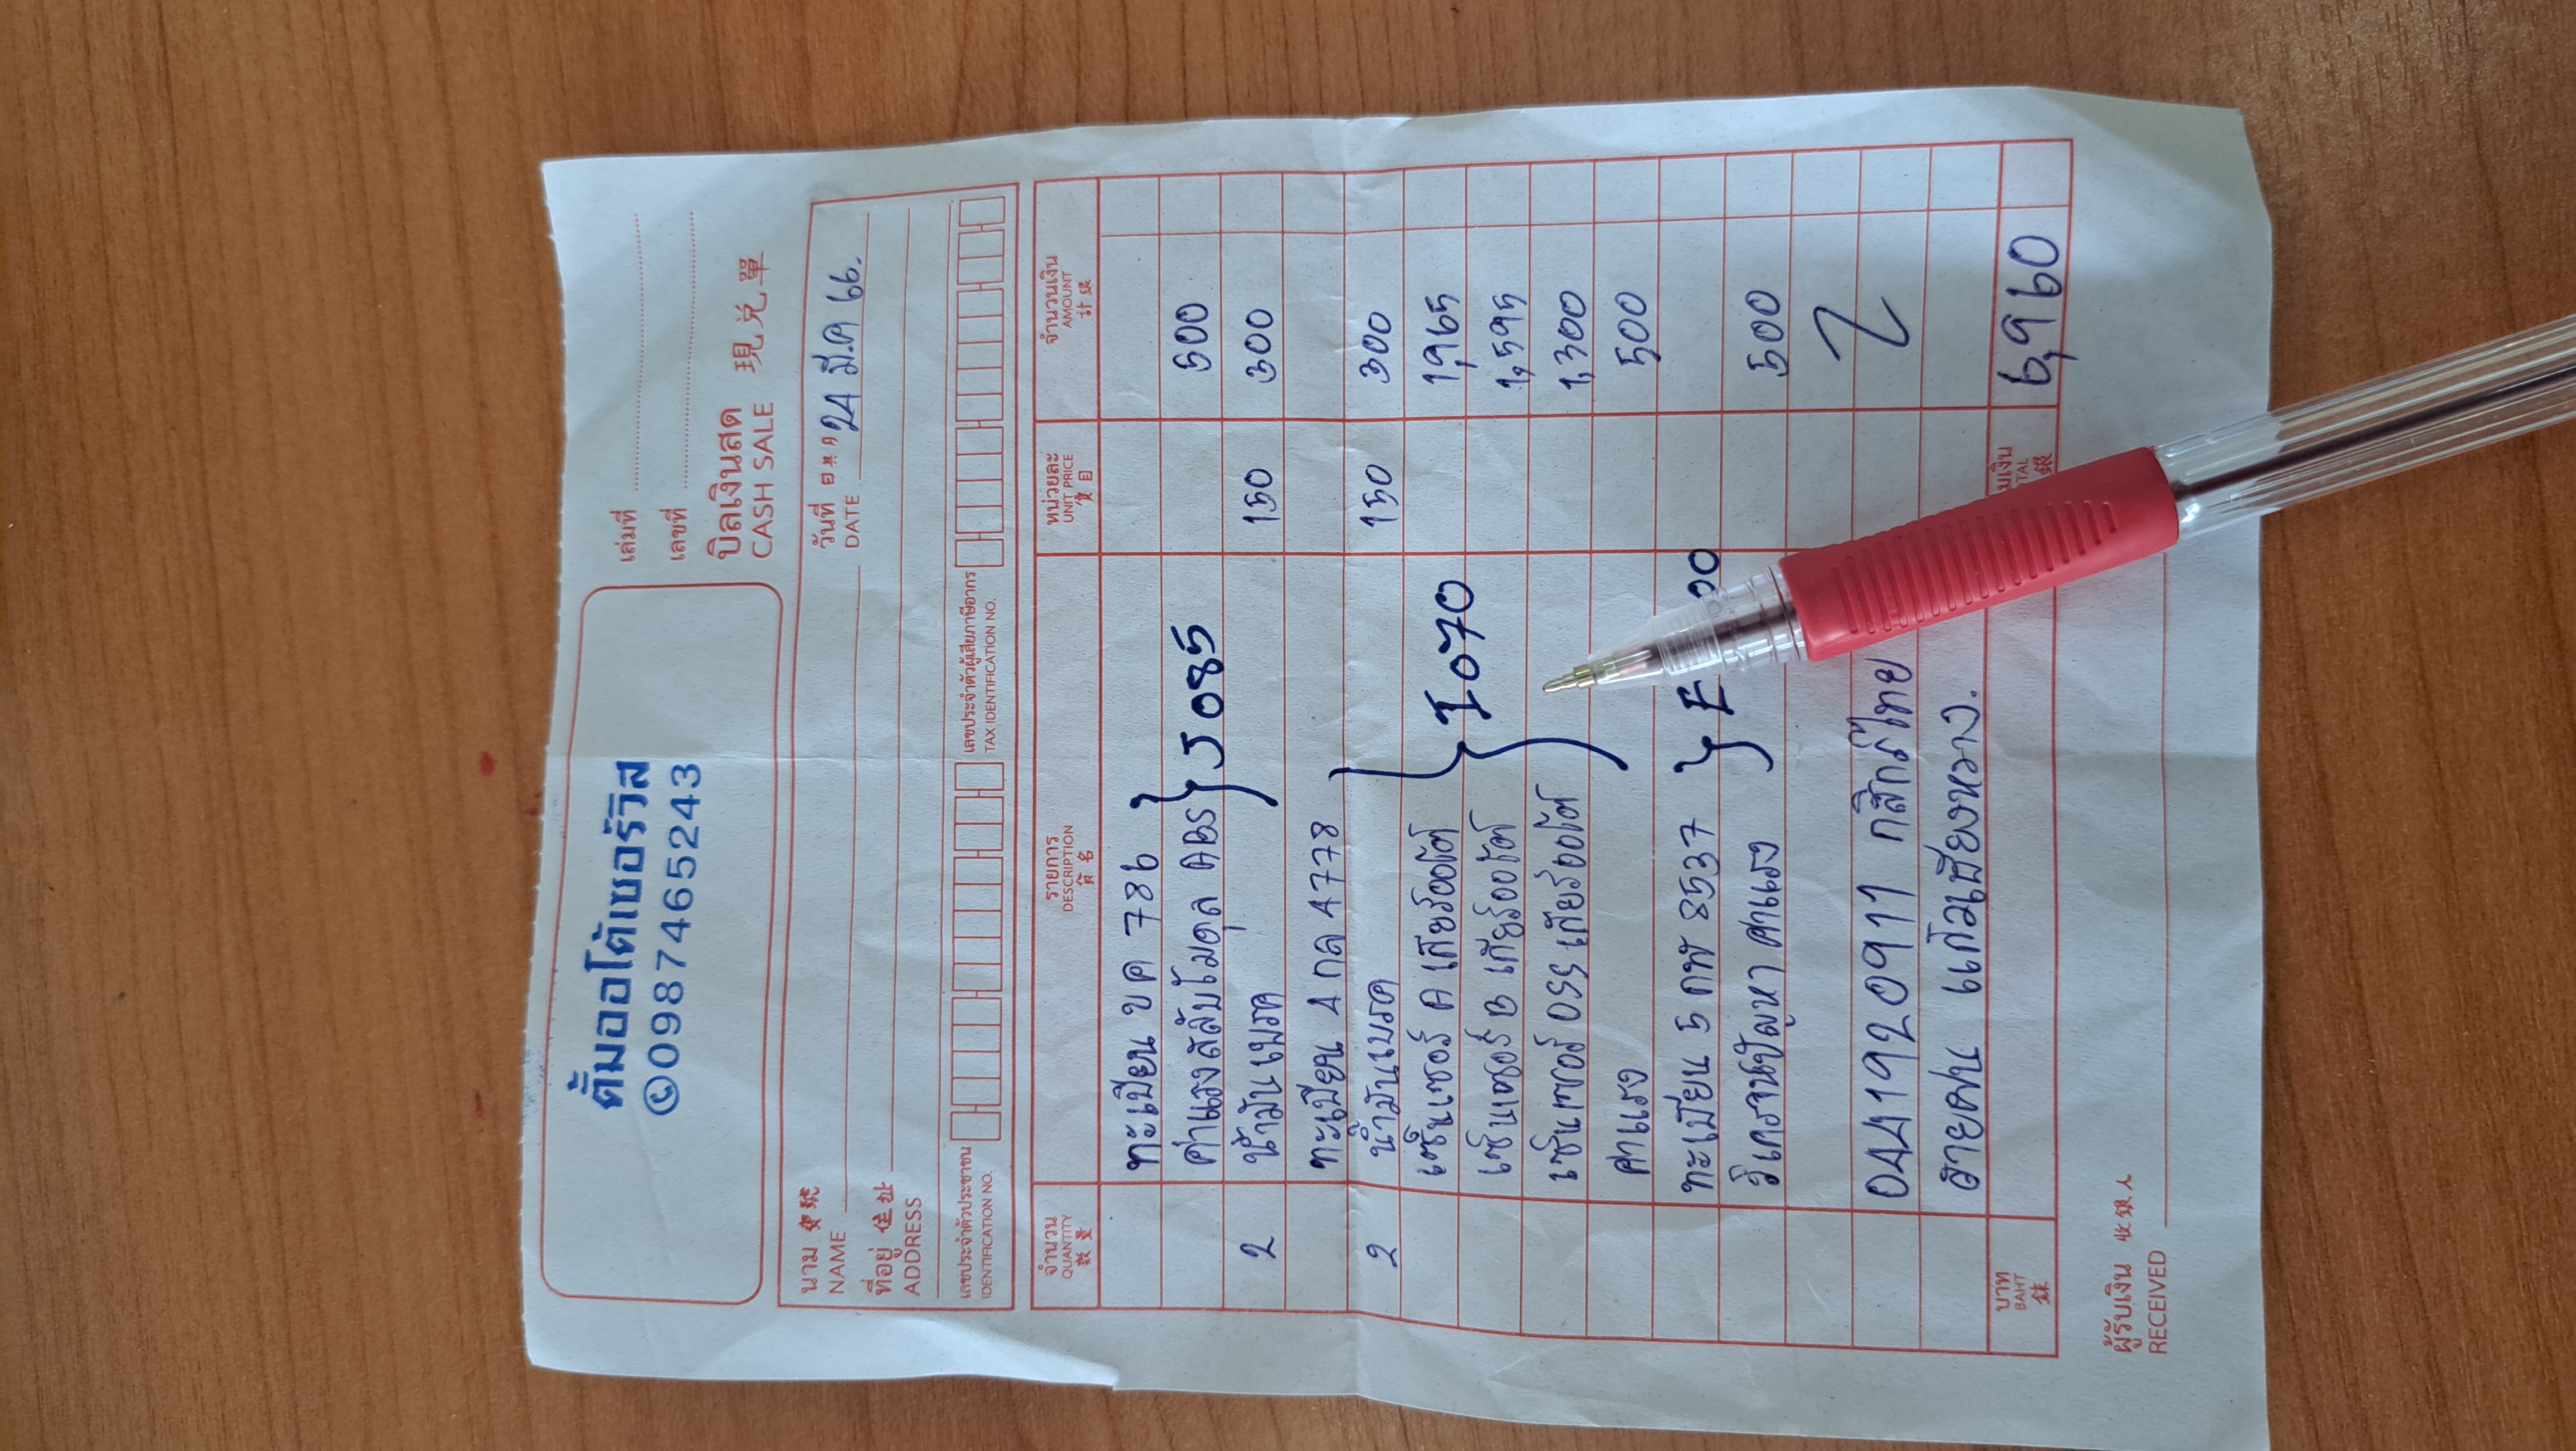 ตั้มออโต้เซอร์วิส
0987465243
เล่มที่
เลขที่
บิลเงินสด 現兌單
CASH SALE
วันที่ 24 มี.ค 66.
DATE
นาม
NAME
ที่อยู่ 住址
ADDRESS
เลขประจำตัวประชาชน
IDENTIFICATION NO.
เลขประจำตัวผู้เสียภาษีอากร
TAX IDENTIFICATION NO.
จำนวน รายการ หน่วยละ จำนวนเงิน
QUANTITY DESCRIPTION UNIT PRICE AMOUNT
ทะเบียน ขค 786
ค่าแรงสลับโมดุล ABS J085 500
2 น้ำมันเบรค 150 300
ทะเบียน 4 กล 4778
2 น้ำมันเบรค 150 300
เซ็นเซอร์ A เกียร์ออโต้ I070 1,965
เซ็นเซอร์ B เกียร์ออโต้ 1,595
เซ็นเซอร์ เกียร์ออโต้ 1,300
ค่าแรง 500
ทะเบียน 5 กฬ 8537
ค่าแรง 500
0441920911 กสิกรไทย
สายฝน
บาท
BAHT
6,960
ผู้รับเงิน 收銀人
RECEIVED